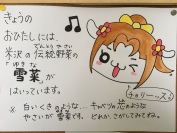 きょうの
おひたしには、
でんとうやさい
米沢の伝統野菜の
ゆきな
雪菜が
はいっています。
※ 白いくきのような… キャベツの芯のような
やさいが 雪菜です。どれか、さがしてみてね。
チョリーッス♪